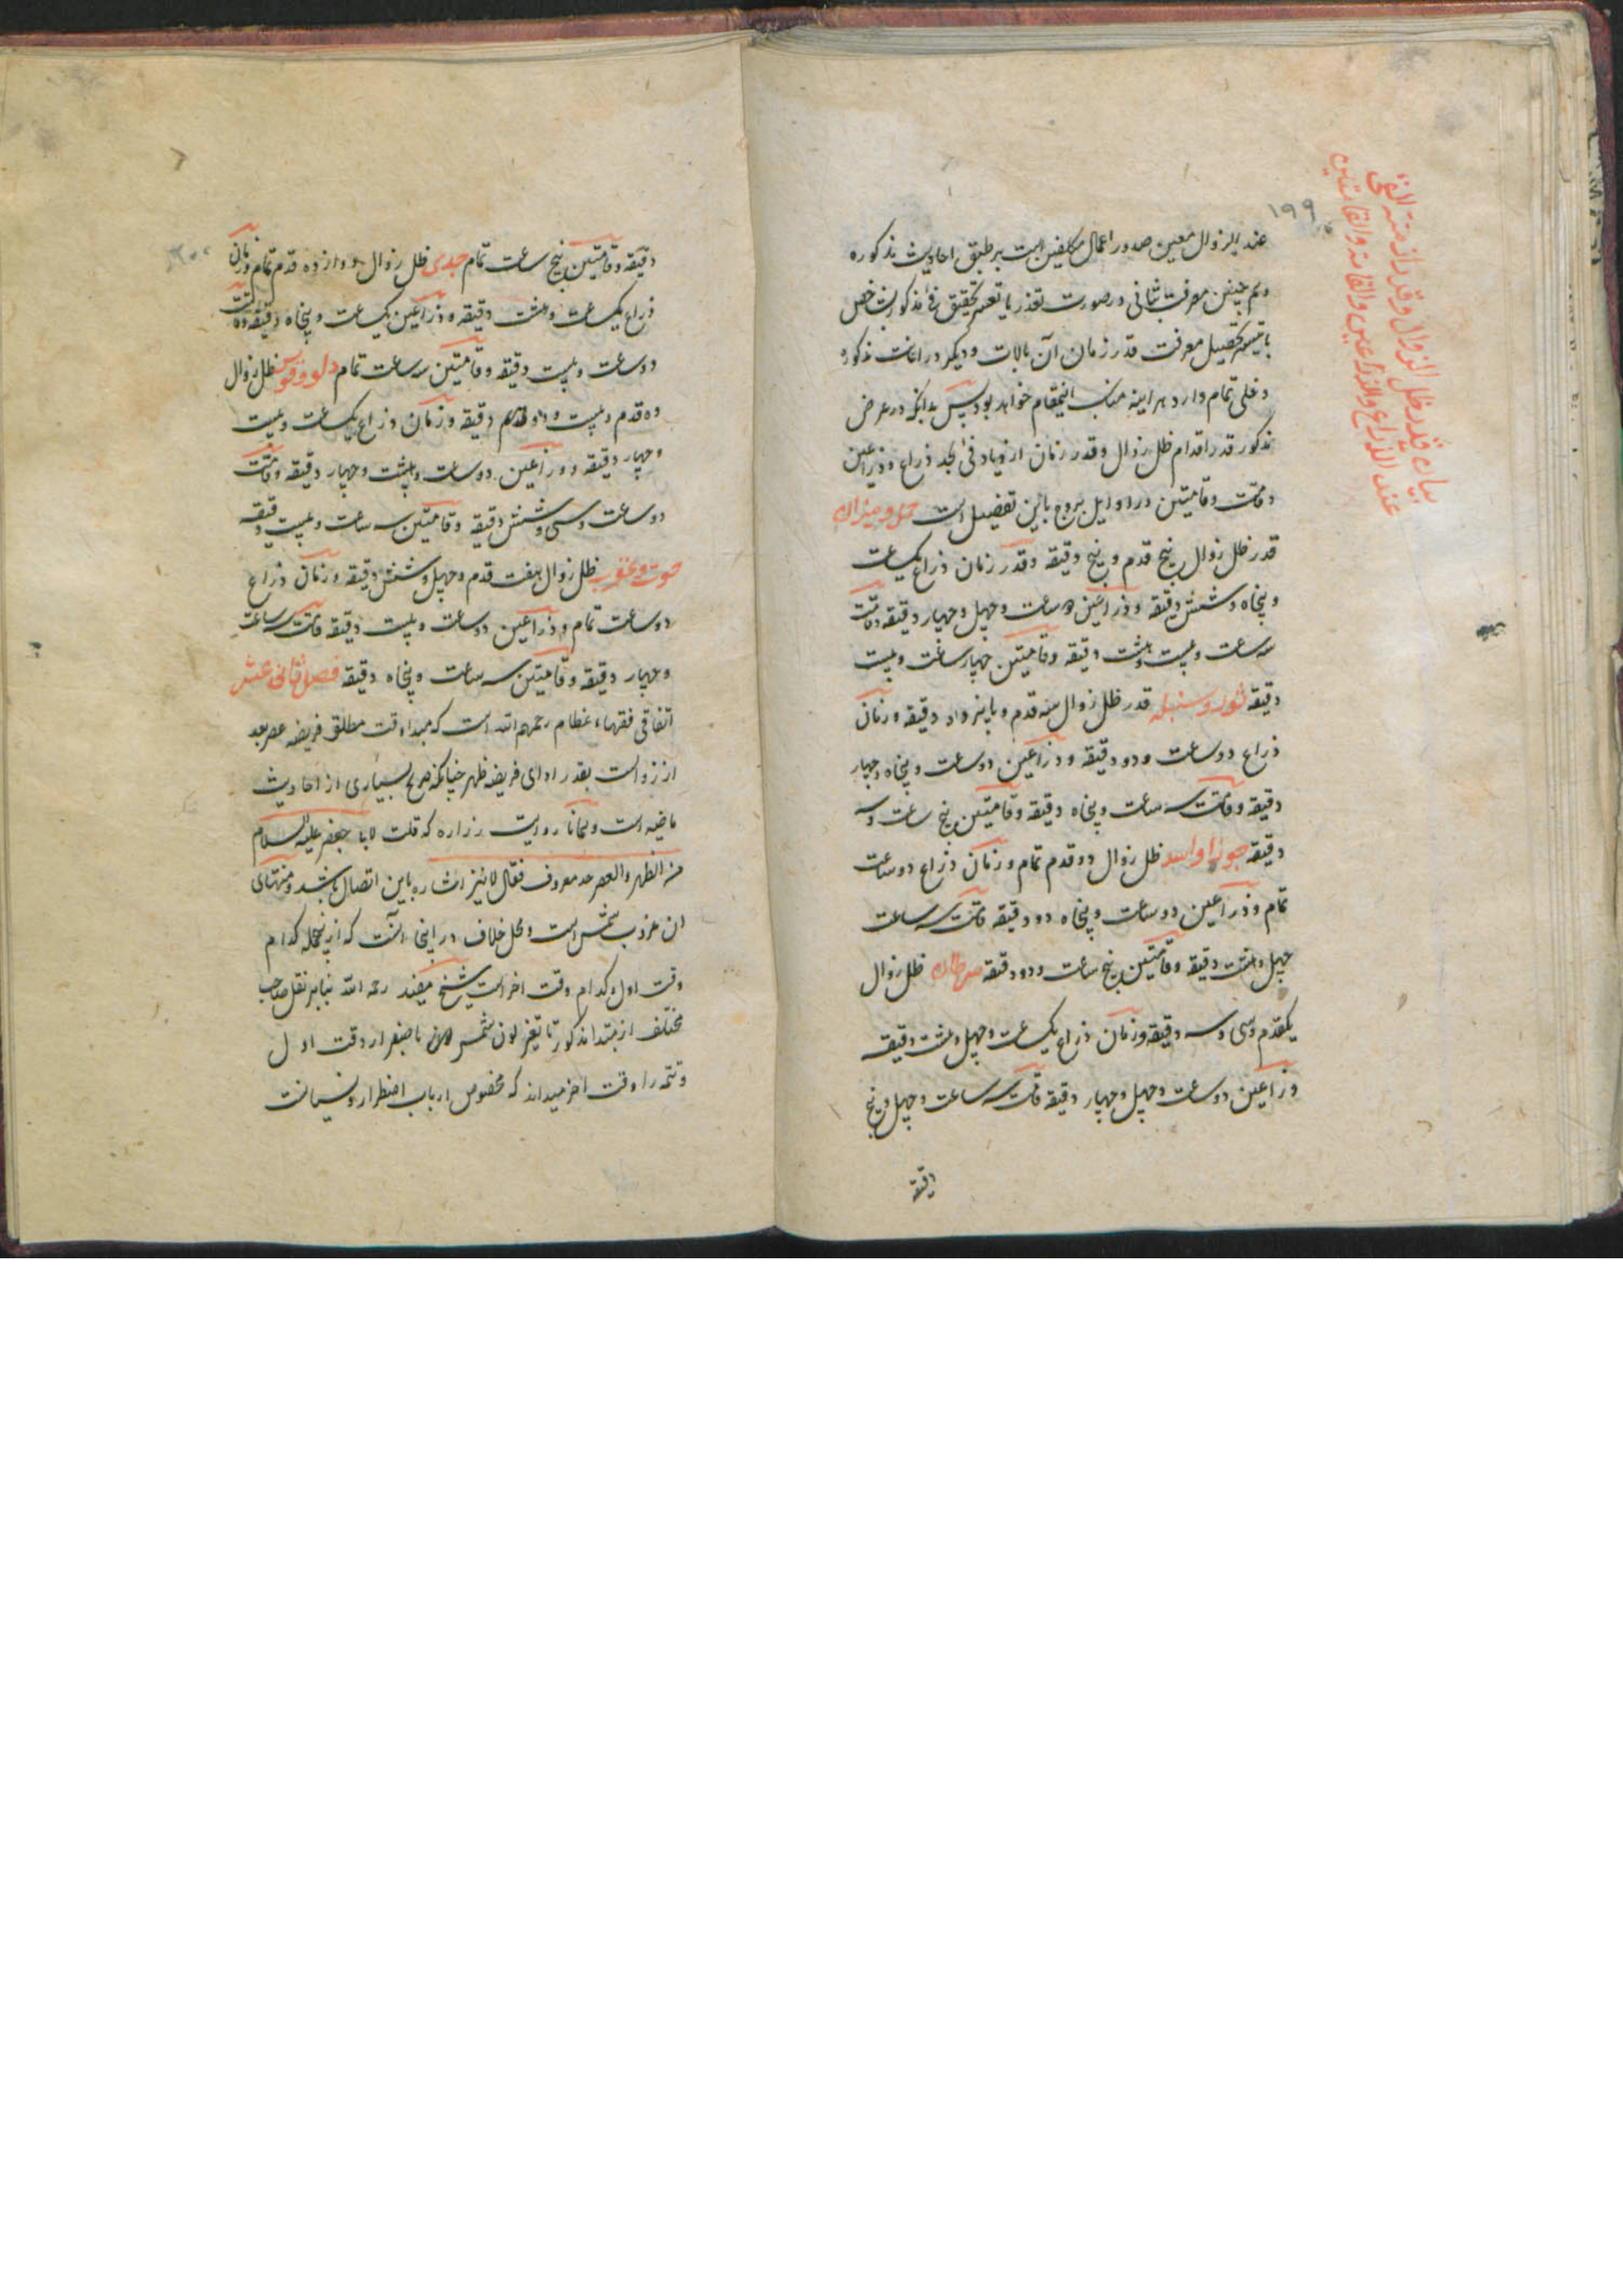 ۱۹۹
بیان قدر ظل الزوال وقدر ازمنة الفئ
عند الذراع والذراعین والقامة والقامتین
عند الزوال معین صدور اعمال مکلفین است بر طبق احادیث مذکوره
و هم چنین معرفت ثانی در صورت تعذر یا تعسر تحقیق فئ مذکور شاخص
یا تیسر تحصیل معرفت قدر زمان آن بالات و دیگر در اعانت مذکوره
دخلی تمام دارد هر اینه مناسب اینمقام خواهد بود پس بدانکه در عرض
مذکور قدر اقدام ظل زوال و قدر زمان ازدیاد فئ بحد ذراع و ذراعین
و قامت و قامتین در اوایل بروج باین تفصیل است حمل و میزان
قدر ظل زوال پنج قدم و پنج دقیقه و قدر زمان ذراع یکساعت
و پنجاه و شش دقیقه و ذراعین دو ساعت و چهل و چهار دقیقه و قامت
سه ساعت و بیست و هشت دقیقه و قامتین چهار ساعت و بیست
دقیقه ثور و سنبله قدر ظل زوال سه قدم و پانزده دقیقه و زمان
ذراع دو ساعت و دو دقیقه و ذراعین دو ساعت و پنجاه و چهار
دقیقه و قامت سه ساعت و پنجاه دقیقه و قامتین پنج ساعت و سه
دقیقه جوزا و اسد ظل زوال دو قدم تمام و زمان ذراع دو ساعت
تمام و ذراعین دو ساعت و پنجاه دو دقیقه قامت سه ساعت
چهل و هشت دقیقه و قامتین پنج ساعت و دو دقیقه سرطان ظل زوال
یکقدم و سی و سه دقیقه و زمان ذراع یک ساعت و چهل و هشت دقیقه
ذراعین دو ساعت و چهل و چهار دقیقه قامت سه ساعت و چهل و پنج
دقیقه
دقیقه و قامتین پنج ساعت تمام جدی ظل زوال دوازده قدم تمام و زمان
ذراع یک ساعت و هشت دقیقه و ذراعین یک ساعت و پنجاه دقیقه و قامت
دو ساعت و بیست دقیقه و قامتین سه ساعت تمام دلو و قوس ظل زوال
ده قدم و بیست و دقیقه و زمان ذراع یکساعت و بیست
و چهار دقیقه و ذراعین دو ساعت و هشت و چهار دقیقه و قامت
دو ساعت و سی و شش دقیقه و قامتین سه ساعت و بیست دقیقه
حوت و عقرب ظل زوال هفت قدم و چهل و شش دقیقه و زمان ذراع
دو ساعت تمام و ذراعین دو ساعت و بیست دقیقه قامت سه ساعت
و چهار دقیقه و قامتین سه ساعت و پنجاه دقیقه فصل ثانی عشر
اتفاقی فقهاء عظام رحمهم الله است که مبدا وقت مطلق فریضه عصر بعد
از زوالست بقدر ادای فریضه ظهر چنانکه صریح بسیاری از احادیث
ماضیه است و همانا روایت زراره که قلت لابا جعفر علیه السلام
بین الظهر والعصر حد معروف فقال لا نیز اشاره باین اتصال باشد و منتهای
ان غروب شمس است و محل خلاف در اینجا آنست که ازینجمله کدام
وقت اول و کدام وقت اخر است شیخ مفید رحمه الله بنابر نقل صاحب
مختلف از مبتدا مذکور تا تغیر لون شمس باصفرار وقت اول
و تتمه را وقت اخر میداند که مخصوص ارباب اضطرار و نسیانست